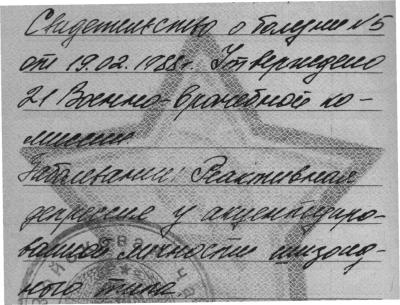 Свидетельство о болезни №5
от 19.02.1988г. Утверждено
21 Военно-врачебной ко-
миссии
Заболевание: Реактивная
депрессия у акцентуиро-
ванной личности шизоид-
ного типа.